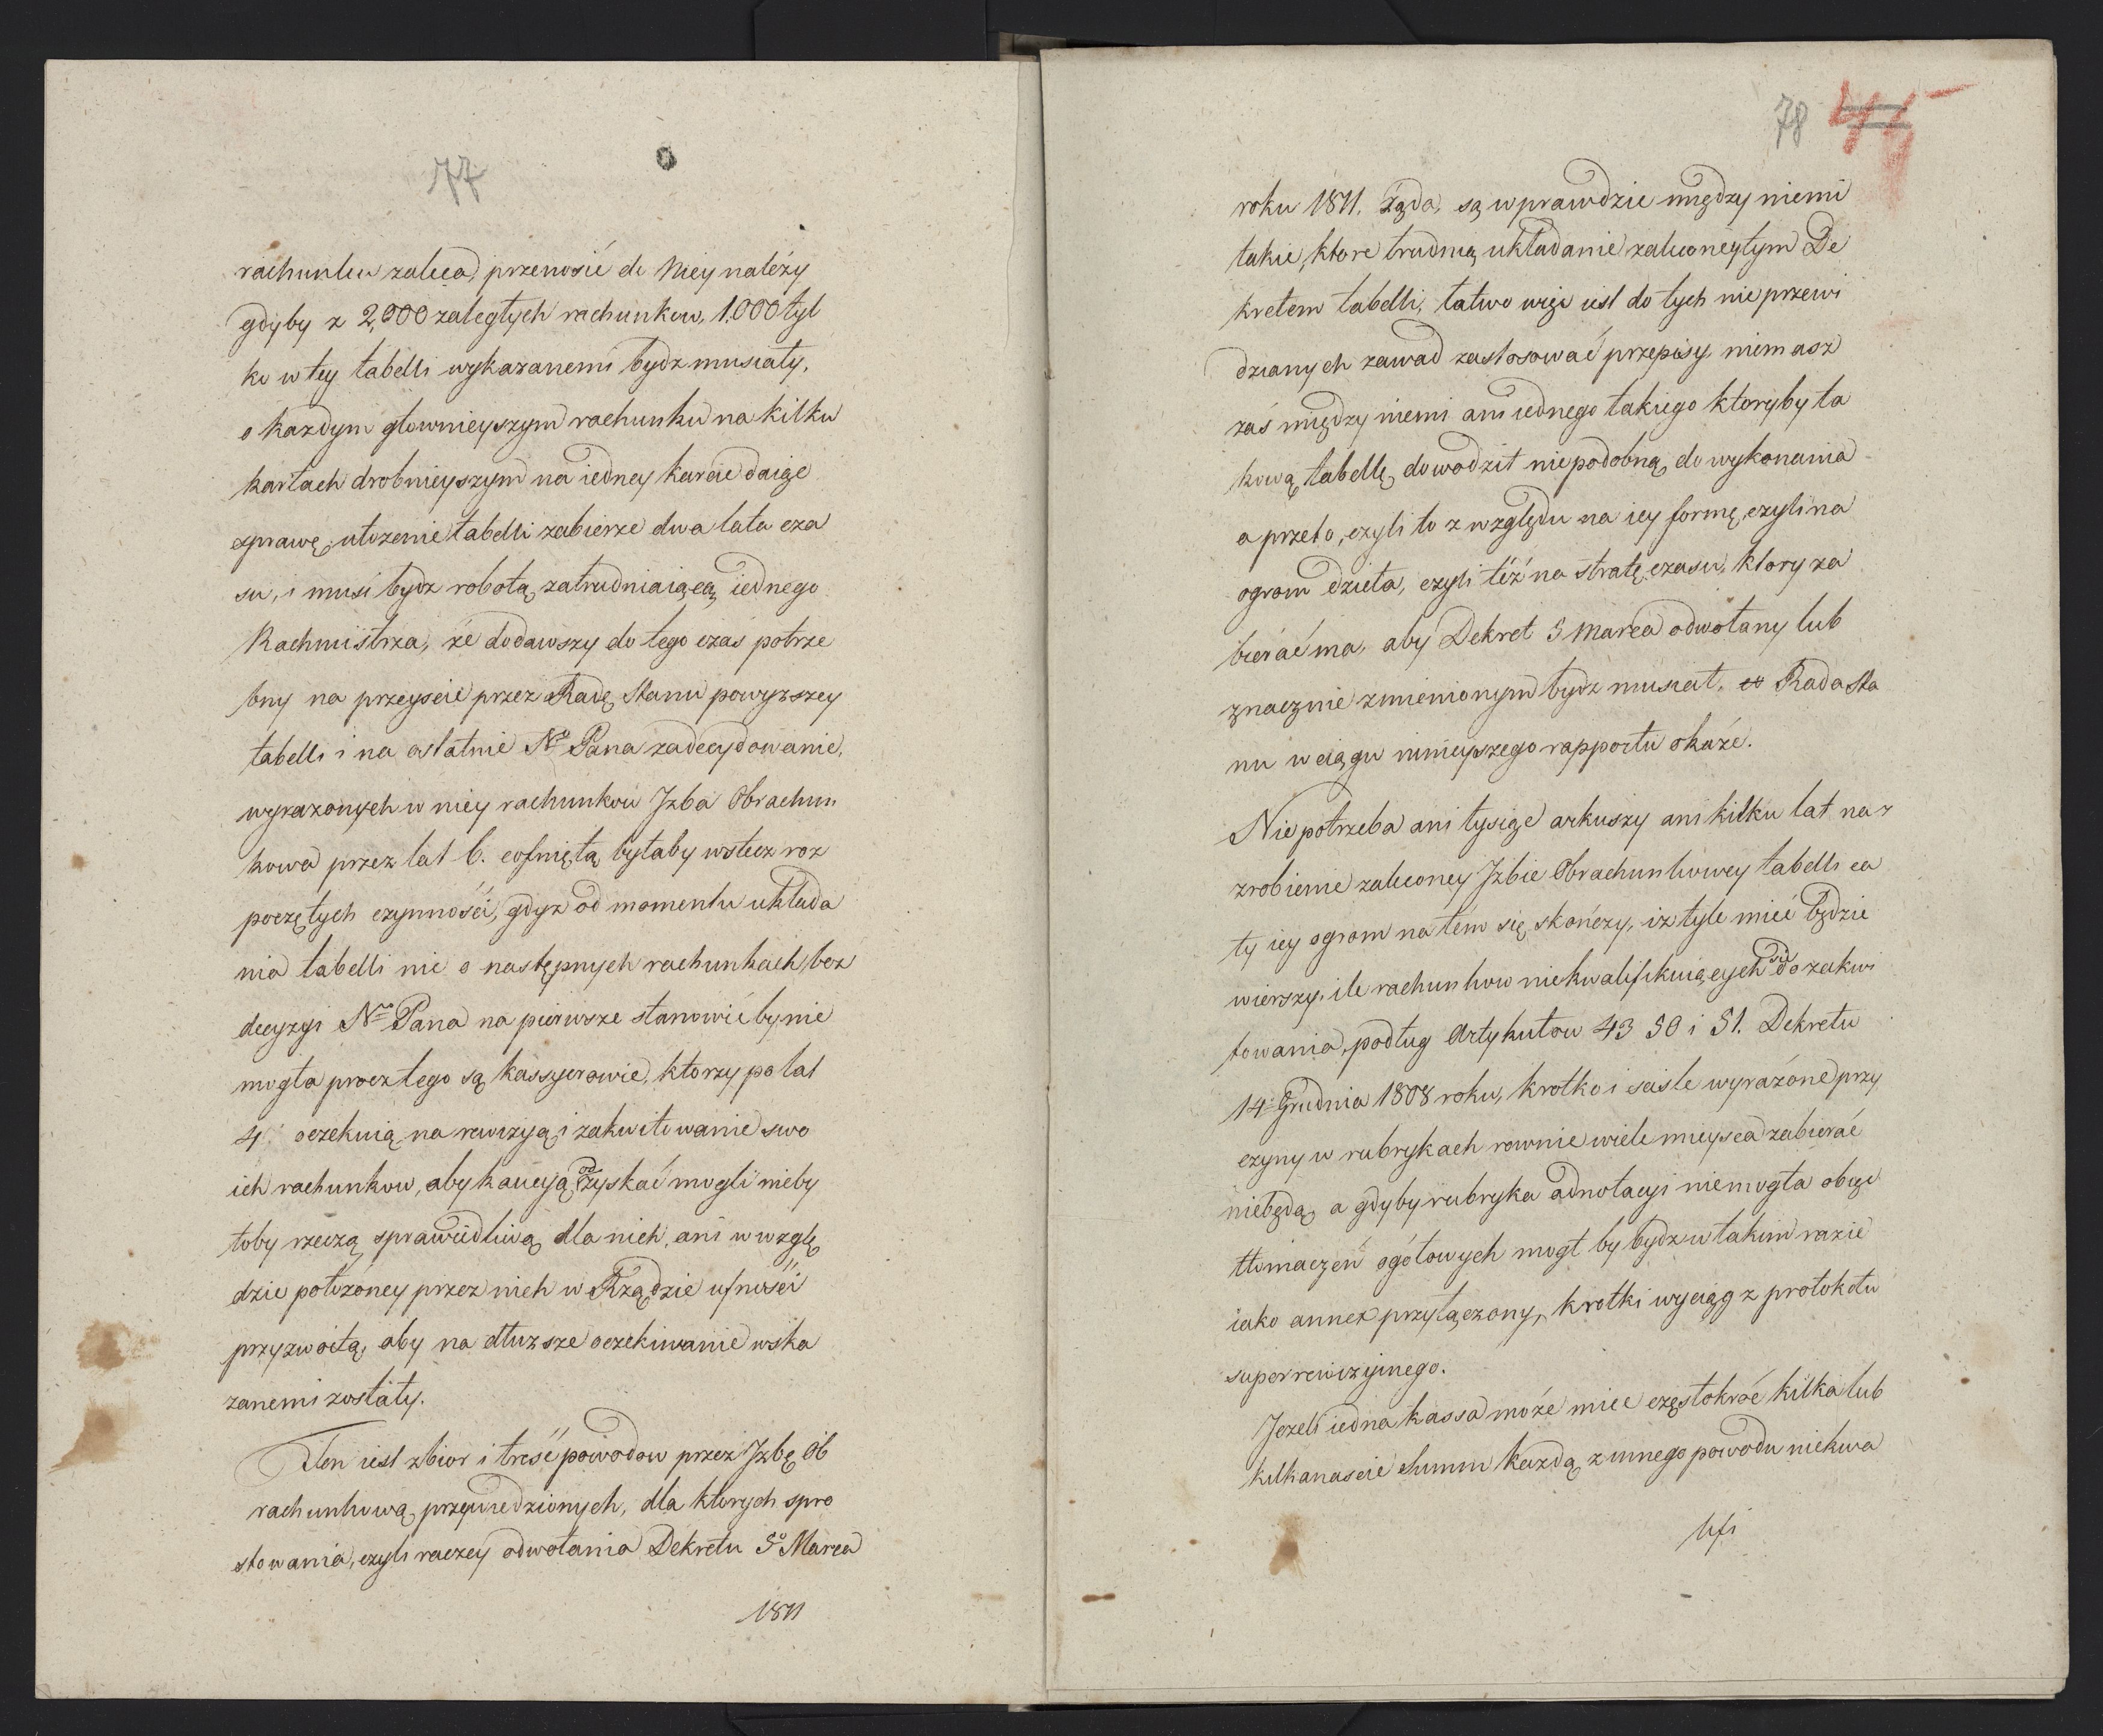 77
rachunku zaleca, przenosić do Niey należy
gdyby z 2,000 zaległych rachunkow, 1.000 tyl
ko w tey tabelli wykazanemi bydz musiały,
o każdym głownieyszym rachunku na kilku
kartach drobnieyszym na iedney karcie daiąc
sprawę, ułożenie tabelli zabierze dwa lata cza
su, i musi bydz robotą zatrudniaiącą, iednego
Rachmistrza, że dodawszy do tego czas potrze
bny na przeyscie przez Radę Stanu powyższey
tabelli i na ostatnie No Pana zadecydowanie,
wyrażonych w niey rachunkow Jzba Obrachun
kowa przez lat 6. cofniętą byłaby wstecz roz
poczętych czynności, gdyż od momentu układa
nia tabelli nic o następnych rachunkach bez
decyzyi No Pana na pierwsze stanowić by nie
mogła procz tego są kassyerowie, ktorzy po lat
4. oczekuią na rewizyą i zakwitowanie swo
ich rachunkow, aby kaucyą odzyskać mogli nieby
łoby rzeczą sprawiedliwą dla nich, ani w wzglę
dzie położoney przez nich w Rządzie ufności
przyzwoitą, aby na dłuższe oczekiwanie wska
zanemi zostały.
Ten iest zbior i treść powodow przez Jzbę Ob
rachunkową przywiedzionych, dla ktorych spro
stowania, czyli raczey odwołania Dekretu 5o Marca
1811
78 45
roku 1811. żąda, są wprawdzie między niemi
takie, ktore trudnią układanie zaleconey tym De
kretem tabelli, łatwo więc iest do tych nieprzewi
dzianych zawad zastosować przepisy, niemasz
zaś między niemi ani iednego takiego ktoryby ta
kową tabellę, dowodził niepodobną do wykonania
a przeto, czyli to z względu na iey formę, czyli na
ogrom dzieła, czyli też na stratę czasu, ktory za
bierać ma, aby Dekret 5 Marca odwołany lub
znacznie zmienionym bydz musiał, co Rada Sta
nu w ciągu ninieyszego rapportu okaże.
Niepotrzeba ani tysiąc arkuszy ani kilku lat na
zrobienie zaleconey Jzbie Obrachunkowey tabelli ca
ły iey ogrom na tem się skończy, iż tyle mieć będzie
wierszy, ile rachunkow niekwalifikuiących się do zakwi
towania, podług Artykułow 43 50 i 51. Dekretu
14o Grudnia 1808 roku, krotko i scisle wyrażone przy
czyny w rubrykach rownie wiele mieysca zabierać
niebędą, a gdyby rubryka adnotacyi niemogła obiąć
tłomaczeń ogółowych mogł by bydz w takim razie
iako annex przyłączony, krotki wyciąg z protokołu
superrewizyinego.
Jeżeli iedna kassa może miec częstokroć kilka lub
kilkanascie Summ każdą z innego powodu niekwa
lifi